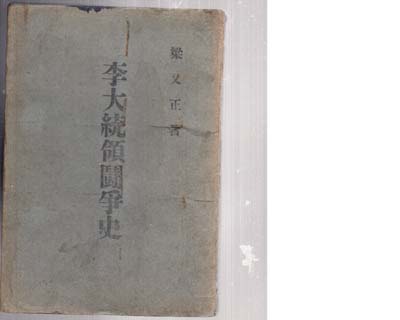 梁又正著
李大統領鬪爭史